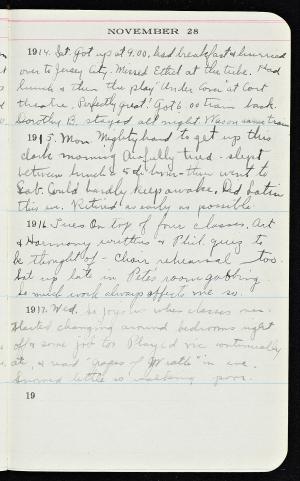 NOVEMBER 28
1914. Sat. Got up at 9.00, had breakfast & hurried
over to Jersey City. Missed Ethel at the tube. Had
lunch & then the play "Under Cover" at Cort
theatre. Perfectly great! Got 6.00 train back.
Dorothy B. stayed all night. Was on same train
1915. Mon. Mighty hard to get up this
dark morning. Awfully tired - slept
between lunch & 5th hour - then went to
Lab. Could hardly keep awake. Did Latin
this eve. Retired as early as possible
1916. Tues. On top of four classes, Art
& Harmony writtens & Phil. quiz to
be thought of - Choir rehearsal too.
Sat up late in Pete's room gabbing.
So much work always affects me so.
1917. Wed. So joyous when classes over.
Started changing around bedrooms right
off & some job too. Played vic continually
& read "Grapes of Wrath" in eve.
Snowed little so walking poor.
19